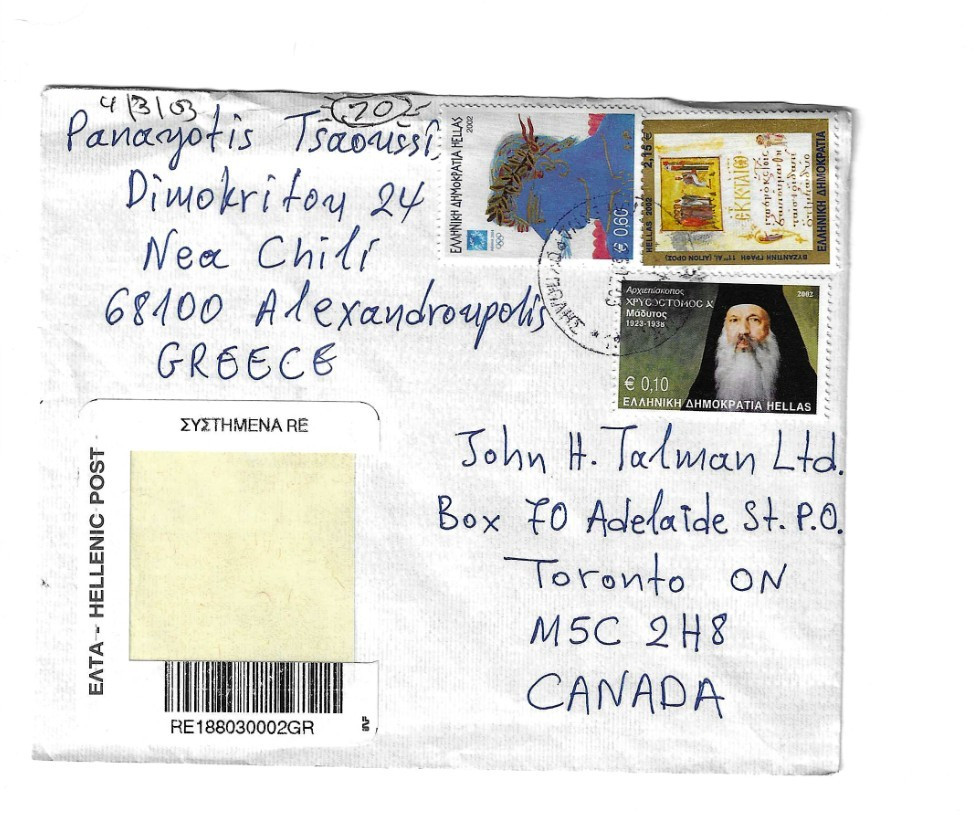 4/3/03
70
Panayotis Tsaoussis
Dimokritou 24
Nea Chili
68100 Alexandroupolis
GREECE
ΕΛΛΗΝΙΚΗ ΔΗΜΟΚΡΑΤΙΑ HELLAS
2002
€ 0.60
2,15 €
HELLAS 2002
ΕΛΛΗΝΙΚΗ ΔΗΜΟΚΡΑΤΙΑ
ΒΥΖΑΝΤΙΝΗ ΓΡΑΦΗ 11ος ΑΙ. (ΑΓΙΟΝ ΟΡΟΣ)
Αρχιεπίσκοπος
2002
ΧΡΥΣΟΣΤΟΜΟΣ Χ
Μάδυτος
1923-1938
€ 0,10
ΕΛΛΗΝΙΚΗ ΔΗΜΟΚΡΑΤΙΑ HELLAS
ΣΥΣΤΗΜΕΝΑ RE
ΕΛΤΑ - HELLENIC POST
RE188030002GR
John H. Talman Ltd.
Box 70 Adelaide St. P.O.
Toronto ON
M5C 2H8
CANADA